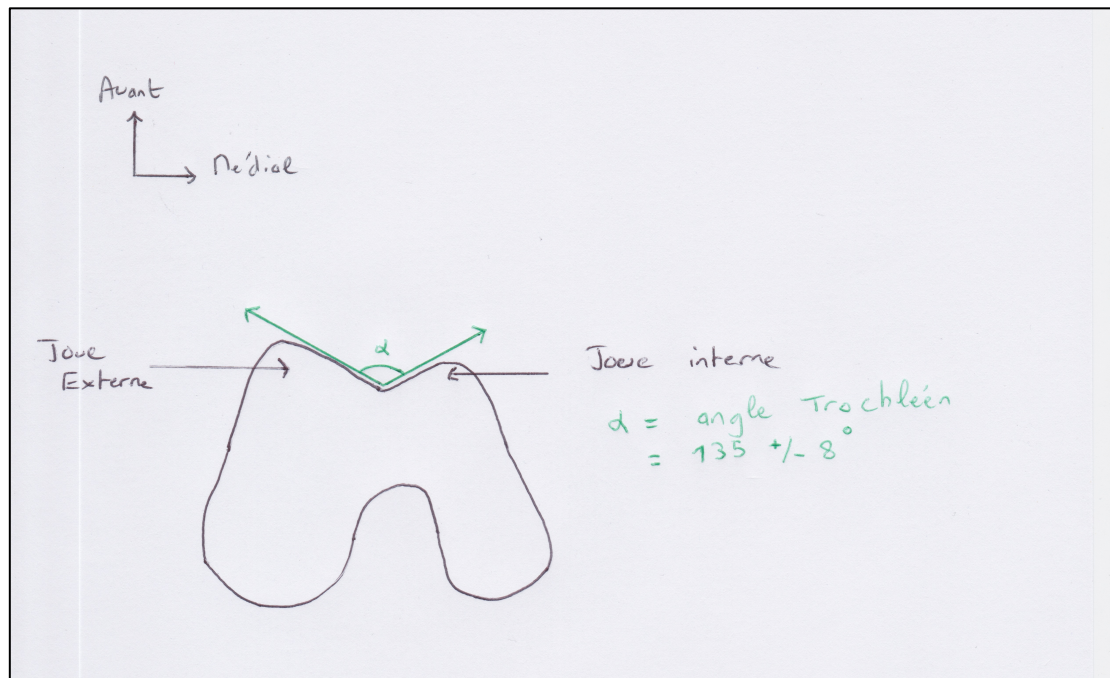 Avant
Médial
Joue
Externe
α
Joue interne
α = angle Trochléén
= 135 +/- 8°